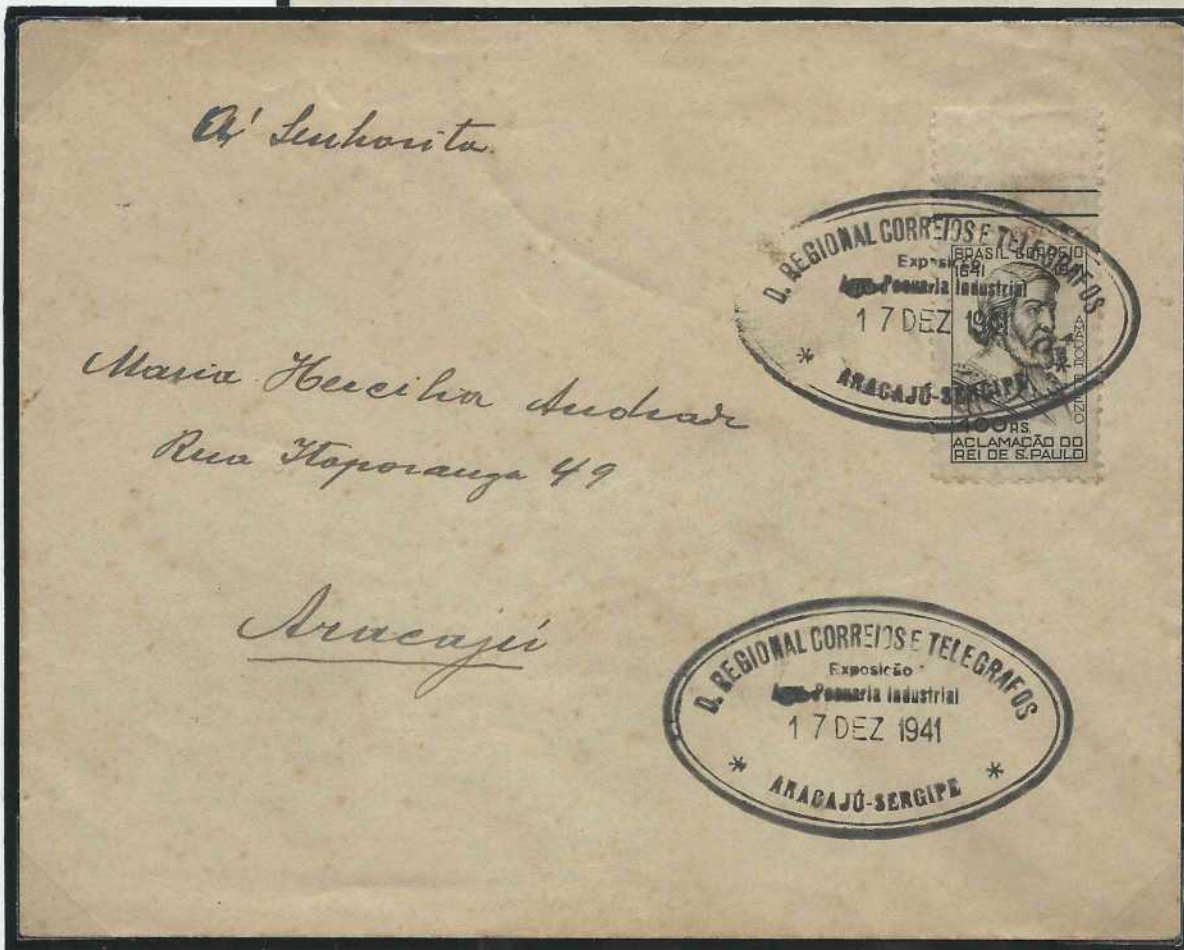 A' Senhorita
Maria Hercilia Andrade
Rua Itaporanga 49
Aracajú
D. REGIONAL CORREIOS E TELEGRAFOS
Exposição
Pecuaria Industrial
17 DEZ 1941
* ARACAJÚ-SERGIPE *
BRASIL CORREIO
1641 1941
AMADOR BUENO
400 RS.
ACLAMAÇÃO DO
REI DE S. PAULO
D. REGIONAL CORREIOS E TELEGRAFOS
Exposição
Pecuaria Industrial
17 DEZ 1941
* ARACAJÚ-SERGIPE *